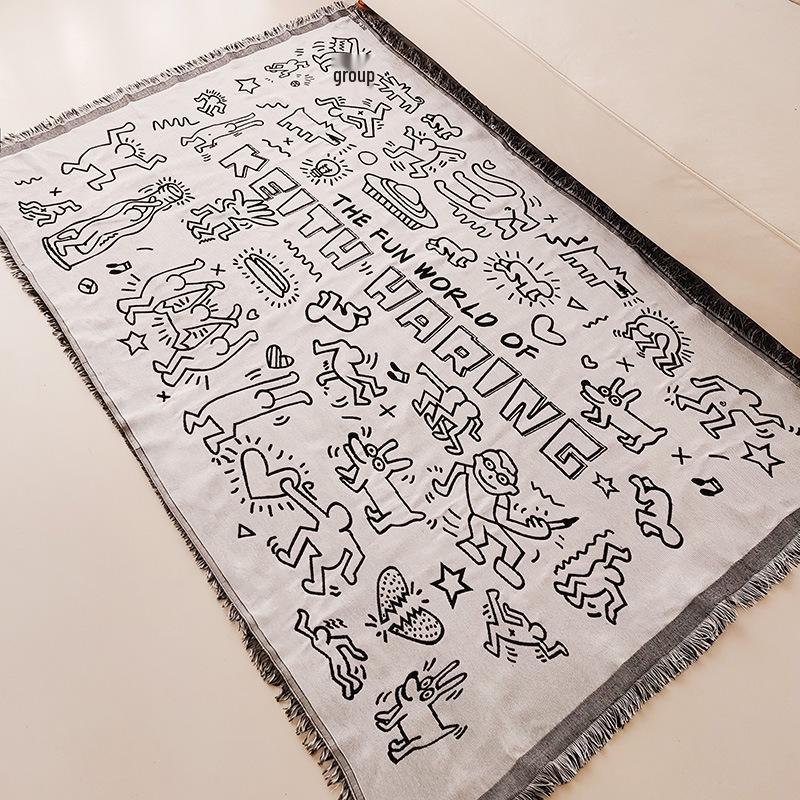 group
THE FUN WORLD OF
KEITH HARING